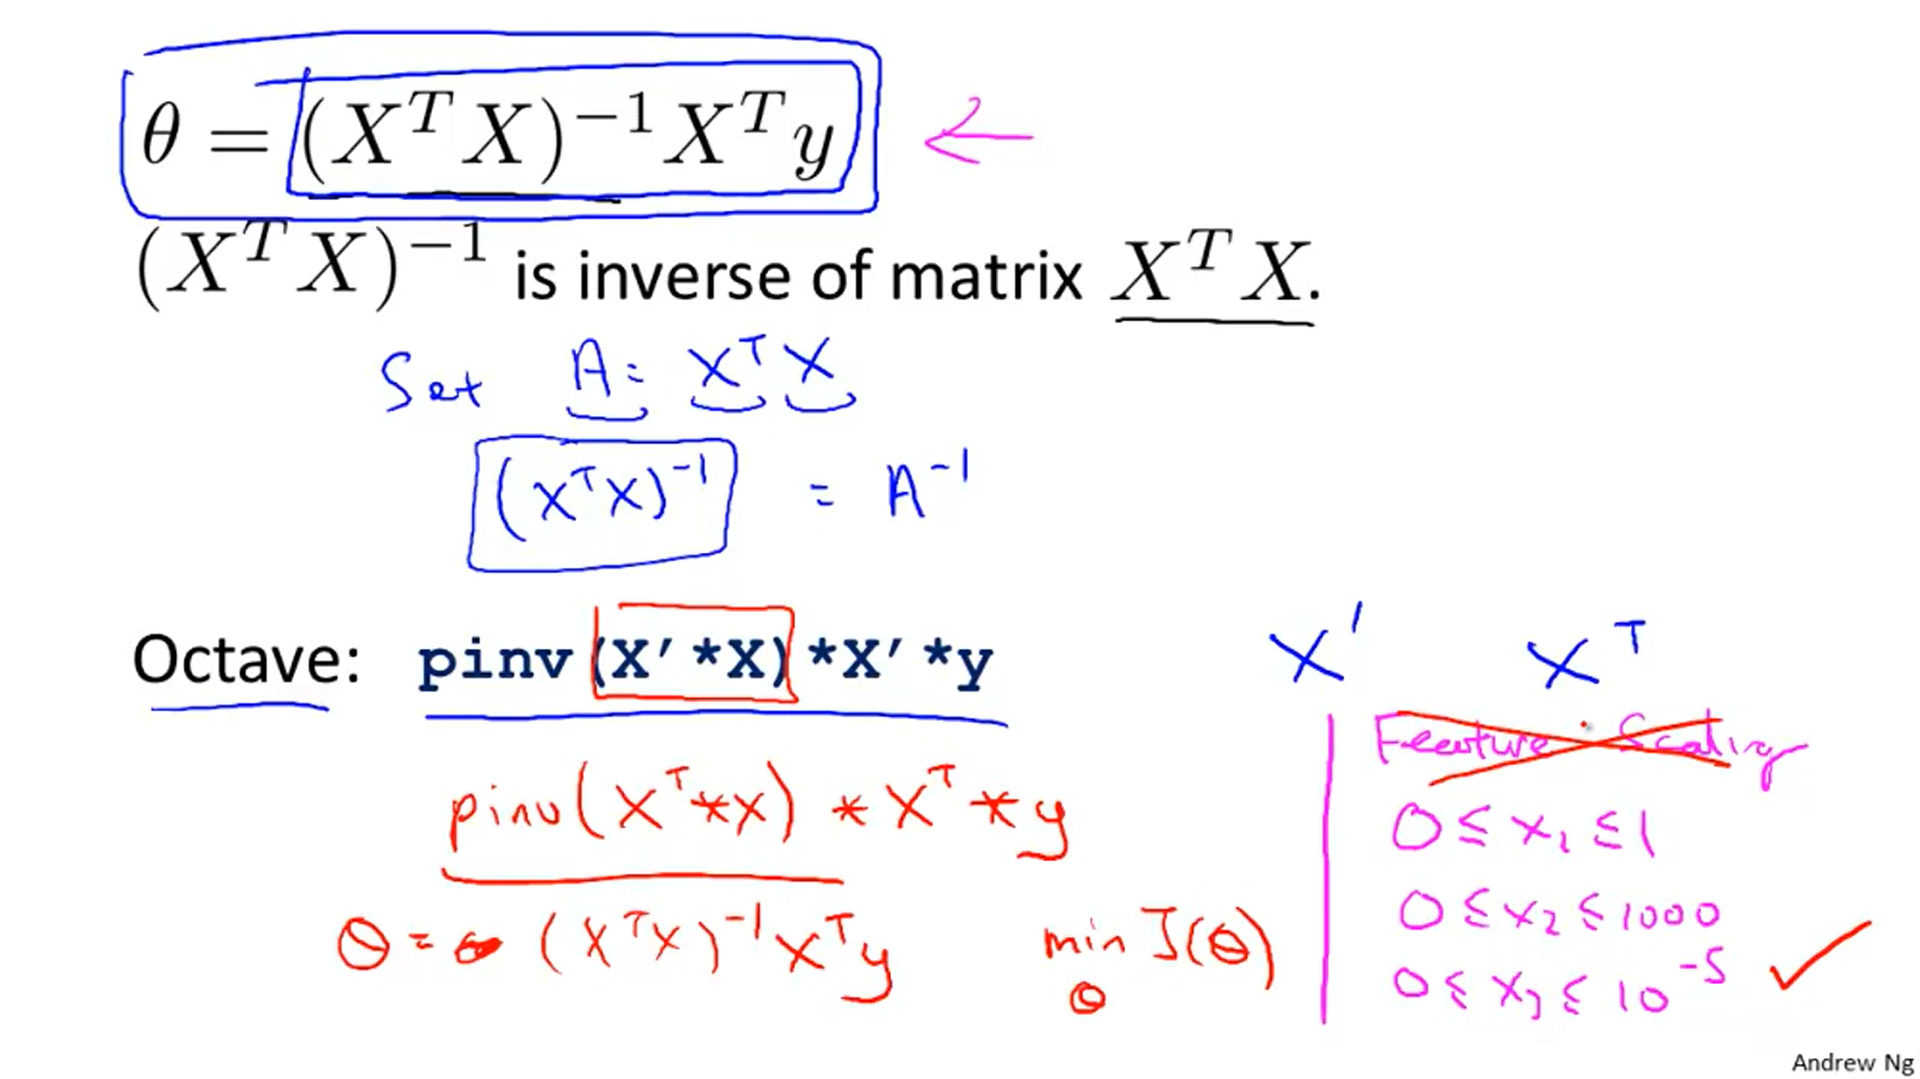 θ = (X^T X)^{-1} X^T y ←
(X^T X)^{-1} is inverse of matrix X^T X.
Set A = X^T X
(X^T X)^{-1} = A^{-1}
Octave: pinv(X'*X)*X'*y
X' X^T
pinv(X^T*X) * X^T * y
θ = (X^T X)^{-1} X^T y
min J(θ)
θ
Feature Scaling
0 ≤ x_1 ≤ 1
0 ≤ x_2 ≤ 1000
0 ≤ x_3 ≤ 10^{-5} ✓
Andrew Ng